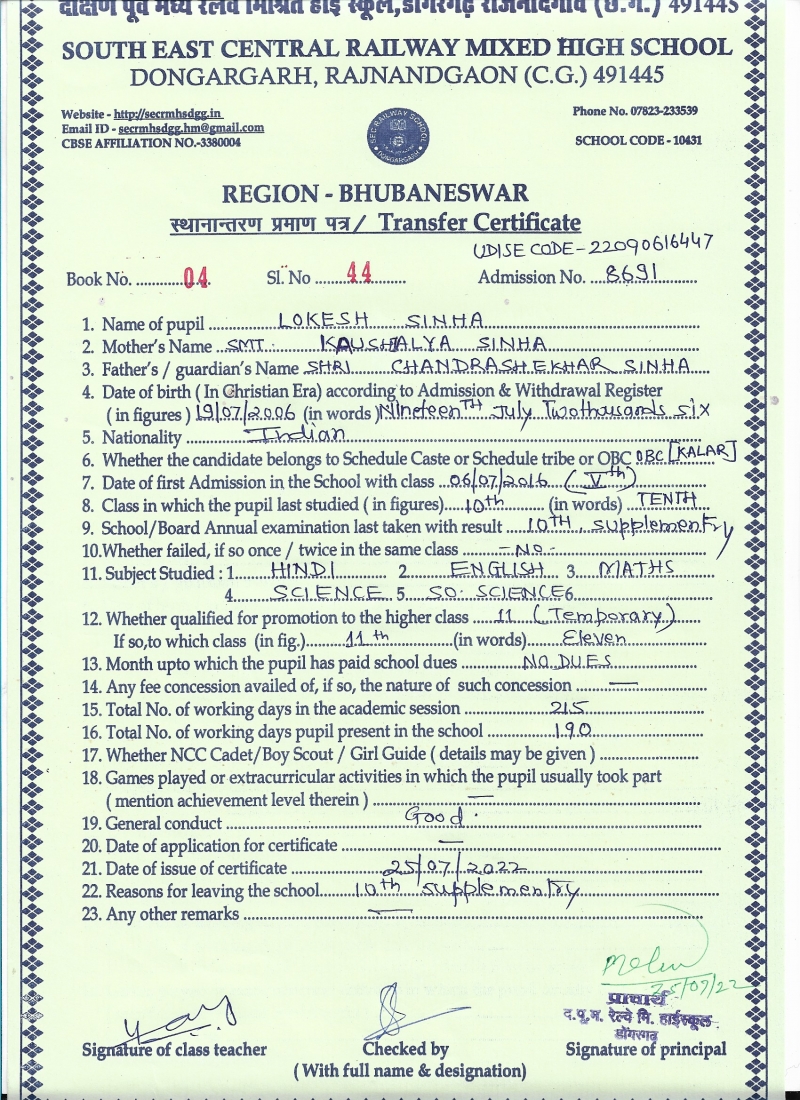 दक्षिण पूर्व मध्य रेलवे मिश्रित हाई स्कूल,डोंगरगढ़ राजनांदगांव (छ.ग.) 491445
SOUTH EAST CENTRAL RAILWAY MIXED HIGH SCHOOL
DONGARGARH, RAJNANDGAON (C.G.) 491445
Website - http://secrmhsdgg.in
Email ID - secrmhsdgg.hm@gmail.com
CBSE AFFILIATION NO.-3380004
SEC RAILWAY SCHOOL
DONGARGARH
Phone No. 07823-233539
SCHOOL CODE - 10431
REGION - BHUBANESWAR
स्थानान्तरण प्रमाण पत्र / Transfer Certificate
UDISE CODE-22090616447
Book No. 04 Sl. No 44 Admission No. 8691
1. Name of pupil LOKESH SINHA
2. Mother's Name SMT. KAUSHALYA SINHA
3. Father's / guardian's Name SHRI CHANDRASHEKHAR SINHA
4. Date of birth ( In Christian Era) according to Admission & Withdrawal Register
( in figures ) 19/07/2006 (in words ) Nineteenth July Twothousands six
5. Nationality Indian
6. Whether the candidate belongs to Schedule Caste or Schedule tribe or OBC OBC [KALAR]
7. Date of first Admission in the School with class 06/07/2016 (Vth)
8. Class in which the pupil last studied ( in figures) 10th (in words) TENTH
9. School/Board Annual examination last taken with result 10TH, supplementry
10.Whether failed, if so once / twice in the same class - No -
11. Subject Studied : 1 HINDI 2 ENGLISH 3 MATHS
4 SCIENCE 5 SO. SCIENCE 6
12. Whether qualified for promotion to the higher class 11 (Temporary)
If so,to which class (in fig.) 11th (in words) Eleven
13. Month upto which the pupil has paid school dues NO DUES
14. Any fee concession availed of, if so, the nature of such concession —
15. Total No. of working days in the academic session 215
16. Total No. of working days pupil present in the school 190
17. Whether NCC Cadet/Boy Scout / Girl Guide ( details may be given )
18. Games played or extracurricular activities in which the pupil usually took part
( mention achievement level therein ) —
19. General conduct Good.
20. Date of application for certificate —
21. Date of issue of certificate 25/07/2022
22. Reasons for leaving the school 10th supplementry
23. Any other remarks —
25/07/22
प्राचार्य
द.पू.म. रेल्वे मि. हाईस्कूल
डोंगरगढ़
Signature of class teacher Checked by Signature of principal
(With full name & designation)